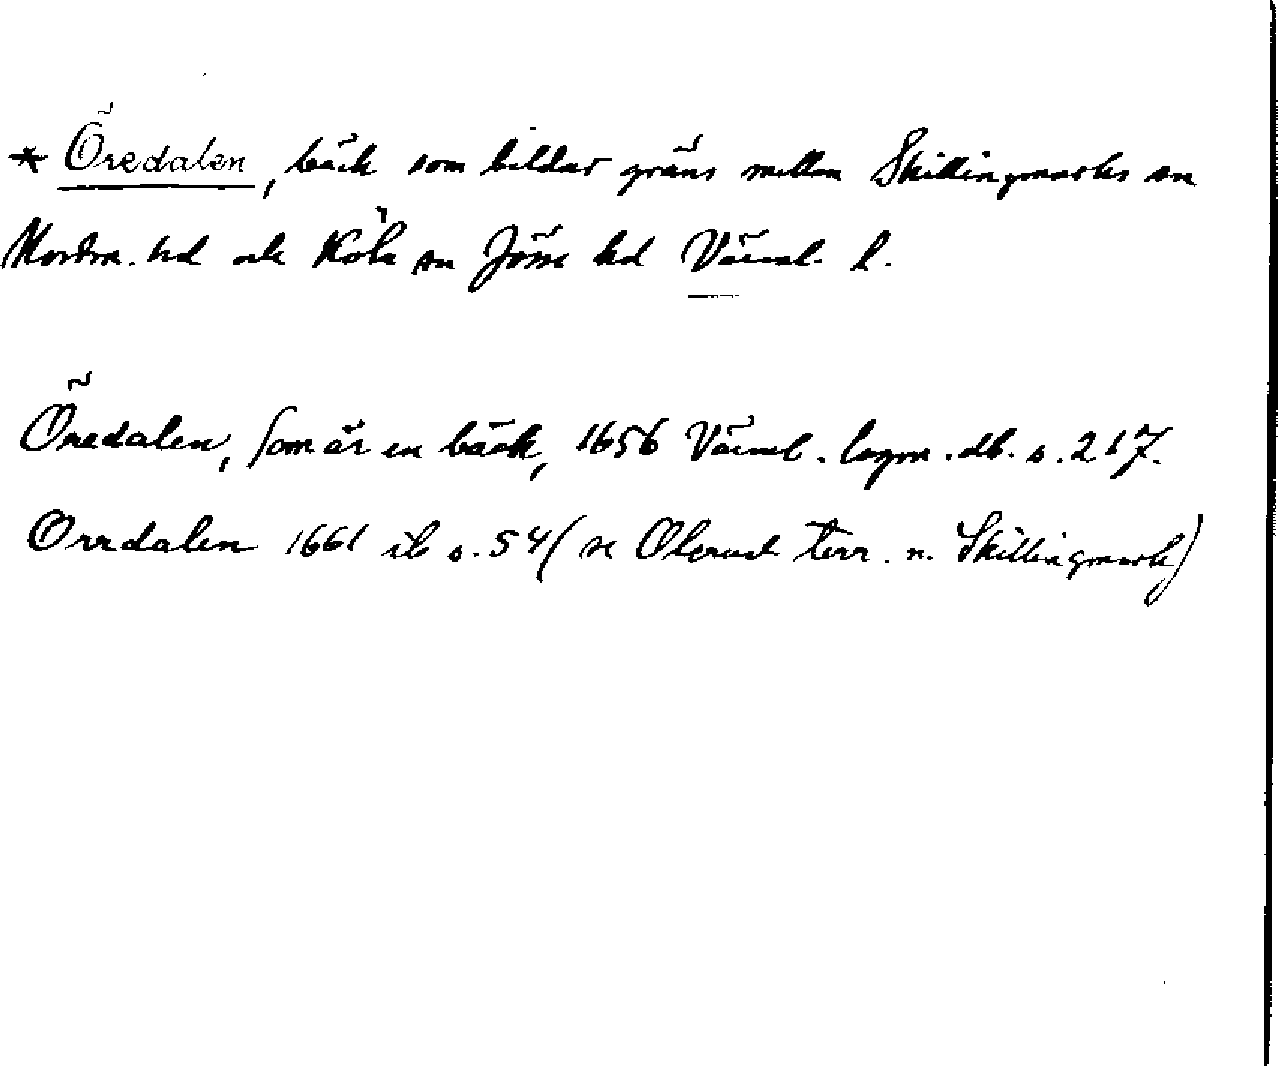 * Öredalen, bäck som bildar gräns mellan Skillingmarks sn
Nordm. hd och Köla sn Jösse hd Värml. l.
Öredalen, som är en bäck, 1656 Värml. lagm. db. s. 217.
Orrdalen 1661 ib s. 54 (se Olerud terr. n. Skillingmark)